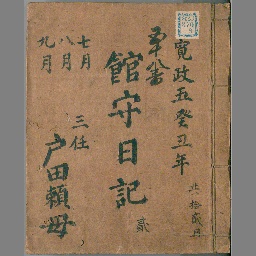 寛政五癸丑年
館守日記
貳
七月
八月
九月
三任
戸田頼母